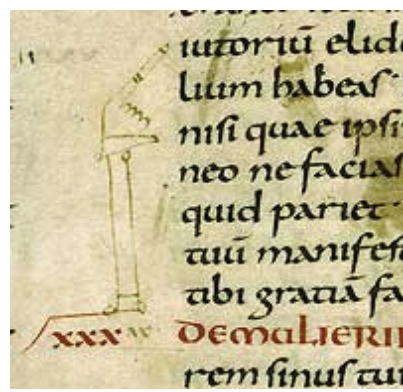 iutoriū elide
lium habeas
nisi quae ipsi
neo ne facias
quid pariet
tuū manifes
tibi gratiā fa
xxx DEMULIERI
rem sinus tu